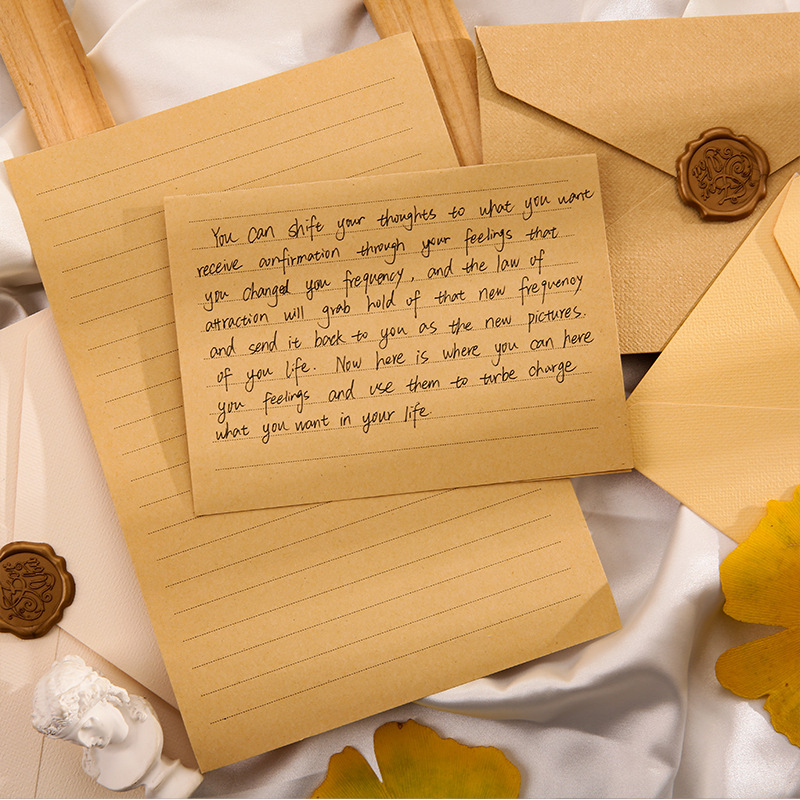 You can shift your thoughts to what you want
receive confirmation through your feelings that
you changed you frequency, and the law of
attraction will grab hold of that new frequency
and send it back to you as the new pictures.
of you life. Now here is where you can here
you feelings and use them to turbe charge
what you want in your life